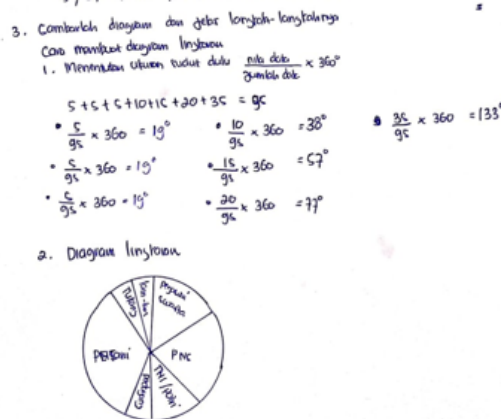 3. Gambarlah diagram dan jelas langkah-langkahnya
Cara membuat diagram lingkaran
1. Menentukan ukuran sudut dulu nilai data / Jumlah data × 360°
5 + 5 + 5 + 10 + 15 + 20 + 35 = 95
• 5/95 × 360 = 19°
• 5/95 × 360 = 19°
• 5/95 × 360 = 19°
• 10/95 × 360 = 38°
• 15/95 × 360 = 57°
• 20/95 × 360 = 77°
• 35/95 × 360 = 133°
2. Diagram lingkaran
Tukang
Pegawai swasta
Petani
PNS
TNI/Polri